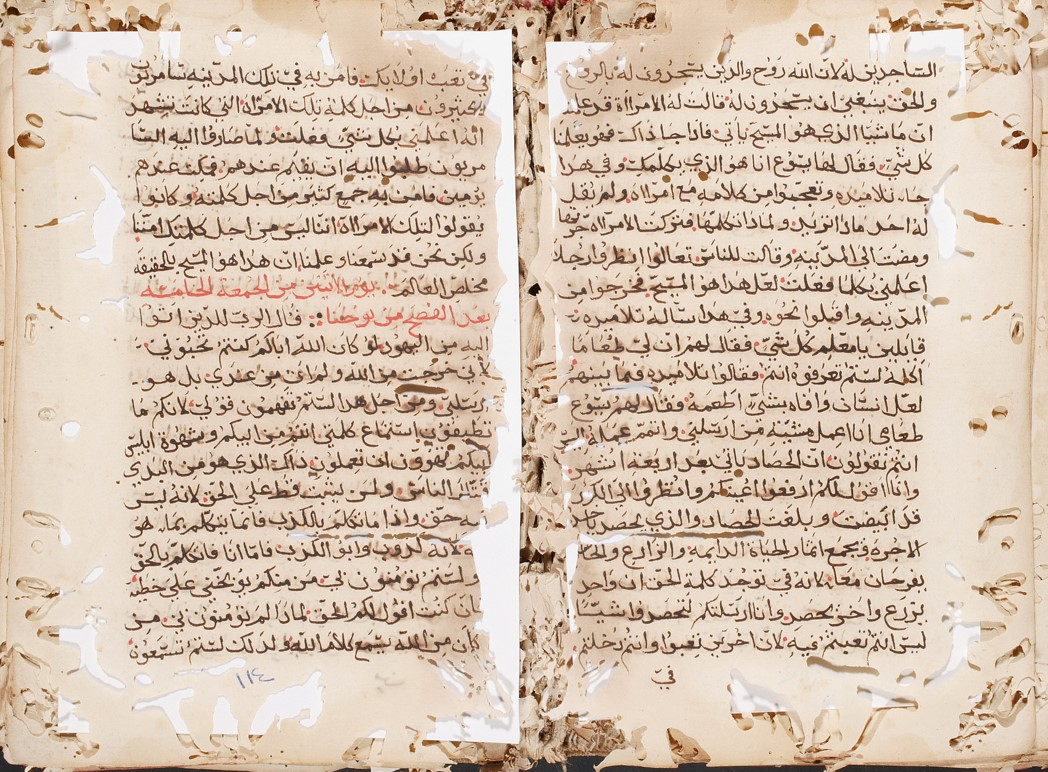 الساجدين له لان الله روح والذين يسجدون له بالروح
والحق ينبغي ان يسجدون له قالت له الامراة قد علمت
ان ماشيا الذي هو المسيح ياتي فاذا جا ذاك فهو يعلمنا
كل شي وفقال لها يسوع انا هو الذي يكلمك وفي هدا
جاء تلاميده وتعجبوا من كلامه مع امراة ولم يقل
له احد ماذا تريد ولماذا تكلمها فتركت الامراة جرتها
ومضت الى المدينه وقالت للناس تعالوا انظروا رجلا
اعلمني بكلما فعلت لعل هدا هو المسيح فخرجوا من
المدينه واقبلوا نحوه وفي هدا ساله تلاميده
قايلين يا معلم كل شي فقال لهم ان لي طعاما
اكله لستم تعرفوه انتم فقالوا تلاميده فيما بينهم
لعل انسان وافاه بشي اطعمه فقال لهم يسوع
طعامي انا اعمل مشيئة من ارسلني واتمم عمله اليس
انتم تقولون ان الحصاد ياتي بعد اربعة اشهر
وانا اقول لكم ارفعوا اعينكم وانظروا الى الكور
قد ابيضت وبلغت الحصاد والذي يحصد ياخد
الاجره ويجمع اثمار لحياة الدايمه والزارع والحا
يفرحان معا كانه في توجد كلمة الحق ان واحد
يزرع واخر يحصد وانا ارسلتكم لتحصدوا شيا
ليس انتم تعبتم فيه لان اخرين تعبوا وانتم دخلتم
في
في تعب اولايك فامن به في تلك المدينه سامريون
كثيرون من اجل كلمة تلك الامراة التي كانت تشهد
انه اعلمني بكل شي فعلت ولما صاروا اليه السا
مريون طلبوا اليه ان يقيم عندهم فمكت عندهم
يومين فامن به جمع كثير من اجل كلمته وكانوا
يقولوا لتلك الامراة اننا ليس من اجل كلمتك امنا
ولكن نحن قد سمعنا وعلمنا ان هدا هو المسيح بالحقيقه
مخلص العالم يوم الاثنين من الجمعة الخامسة
بعد الفصح من يوحنا قال الرب للدين اتوا
اليه من اليهود لو كان الله اباكم كنتم تحبوني
لاني خرجت من الله ولم ات من عندي بل هو
ارسلني ومن اجل هدا لستم تفهمون قولي لانكم ما
تطيقون استماع كلمتي انتم من ابيكم وشهوة ابليس
ابيكم تهوون ان تعملون داك الذي هو من البدي
قتال الناس ولم يثبت قط على الحق لانه ليس
فيه حق واذا ما تكلم بالكدب فانما يتكلم بما هو
له لانه كدوب وابو الكدب فاما انا فاتكلم بالحق
ولستم تومنون بي من منكم يوبخني على خطيه
فان كنت اقول لكم الحق لماذا لم تومنون بي من
كان من الله يسمع كلام الله ولدلك لستم تسمعون
١١٤